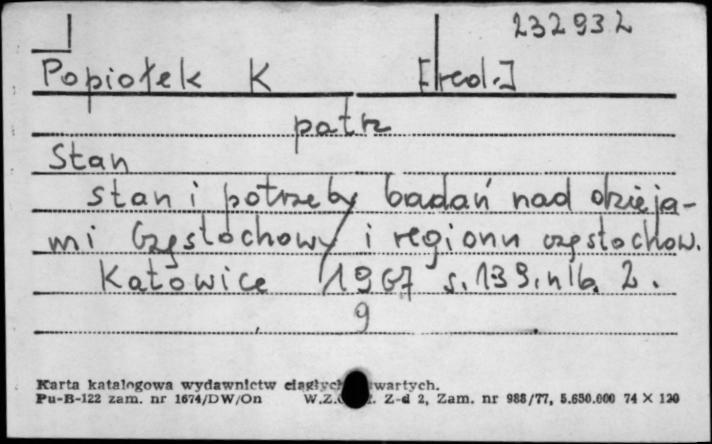 232932
Popiołek K [red.]
patrz
Stan
stan i potrzeby badań nad dzieja-
mi Częstochowy i regionu częstochow.
Katowice 1967 s. 139. nlb. 2.
9
Karta katalogowa wydawnictw ciągłych wartych.
Pu-B-122 zam. nr 1674/DW/On W.Z. Z-d 2, Zam. nr 988/77, 5.650.000 74 X 120